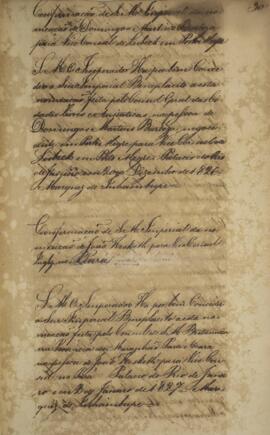 Confirmação de S. M. Imperial da no-
meação de Domingos Martins Barboza
para Vice Consul de Lubeck em Porto Alegre
S. M. O Imperador Ha por bem Conce-
der o Seu Imperial Beneplacito a esta
nomeação feita pelo Consul Geral das Ci-
dades livres e Anseaticas na pessoa de
Domingos Martins Barboza, negoci-
ante em Porto Alegre para Vice Consul de
Lubeck em Porto Alegre. Palacio do Rio
de Janeiro em Dezembro de 1826
Marquez de Inhambupe
Confirmação de S. M. Imperial da no-
meação de João Hesketh para Vice Consul
Inglez no Pará
S. M. O Imperador Ha por bem Conceder
o Seu Imperial Beneplacito a esta no-
meação feita pelo Consul de S. M. Britannica
na Provincia do Maranhão Pará e Ceará
na pessoa de João Hesketh para Vice Con-
sul no Pará. Palacio do Rio de Janei-
ro em Janeiro de 1827. Mar-
quez de Inhambupe